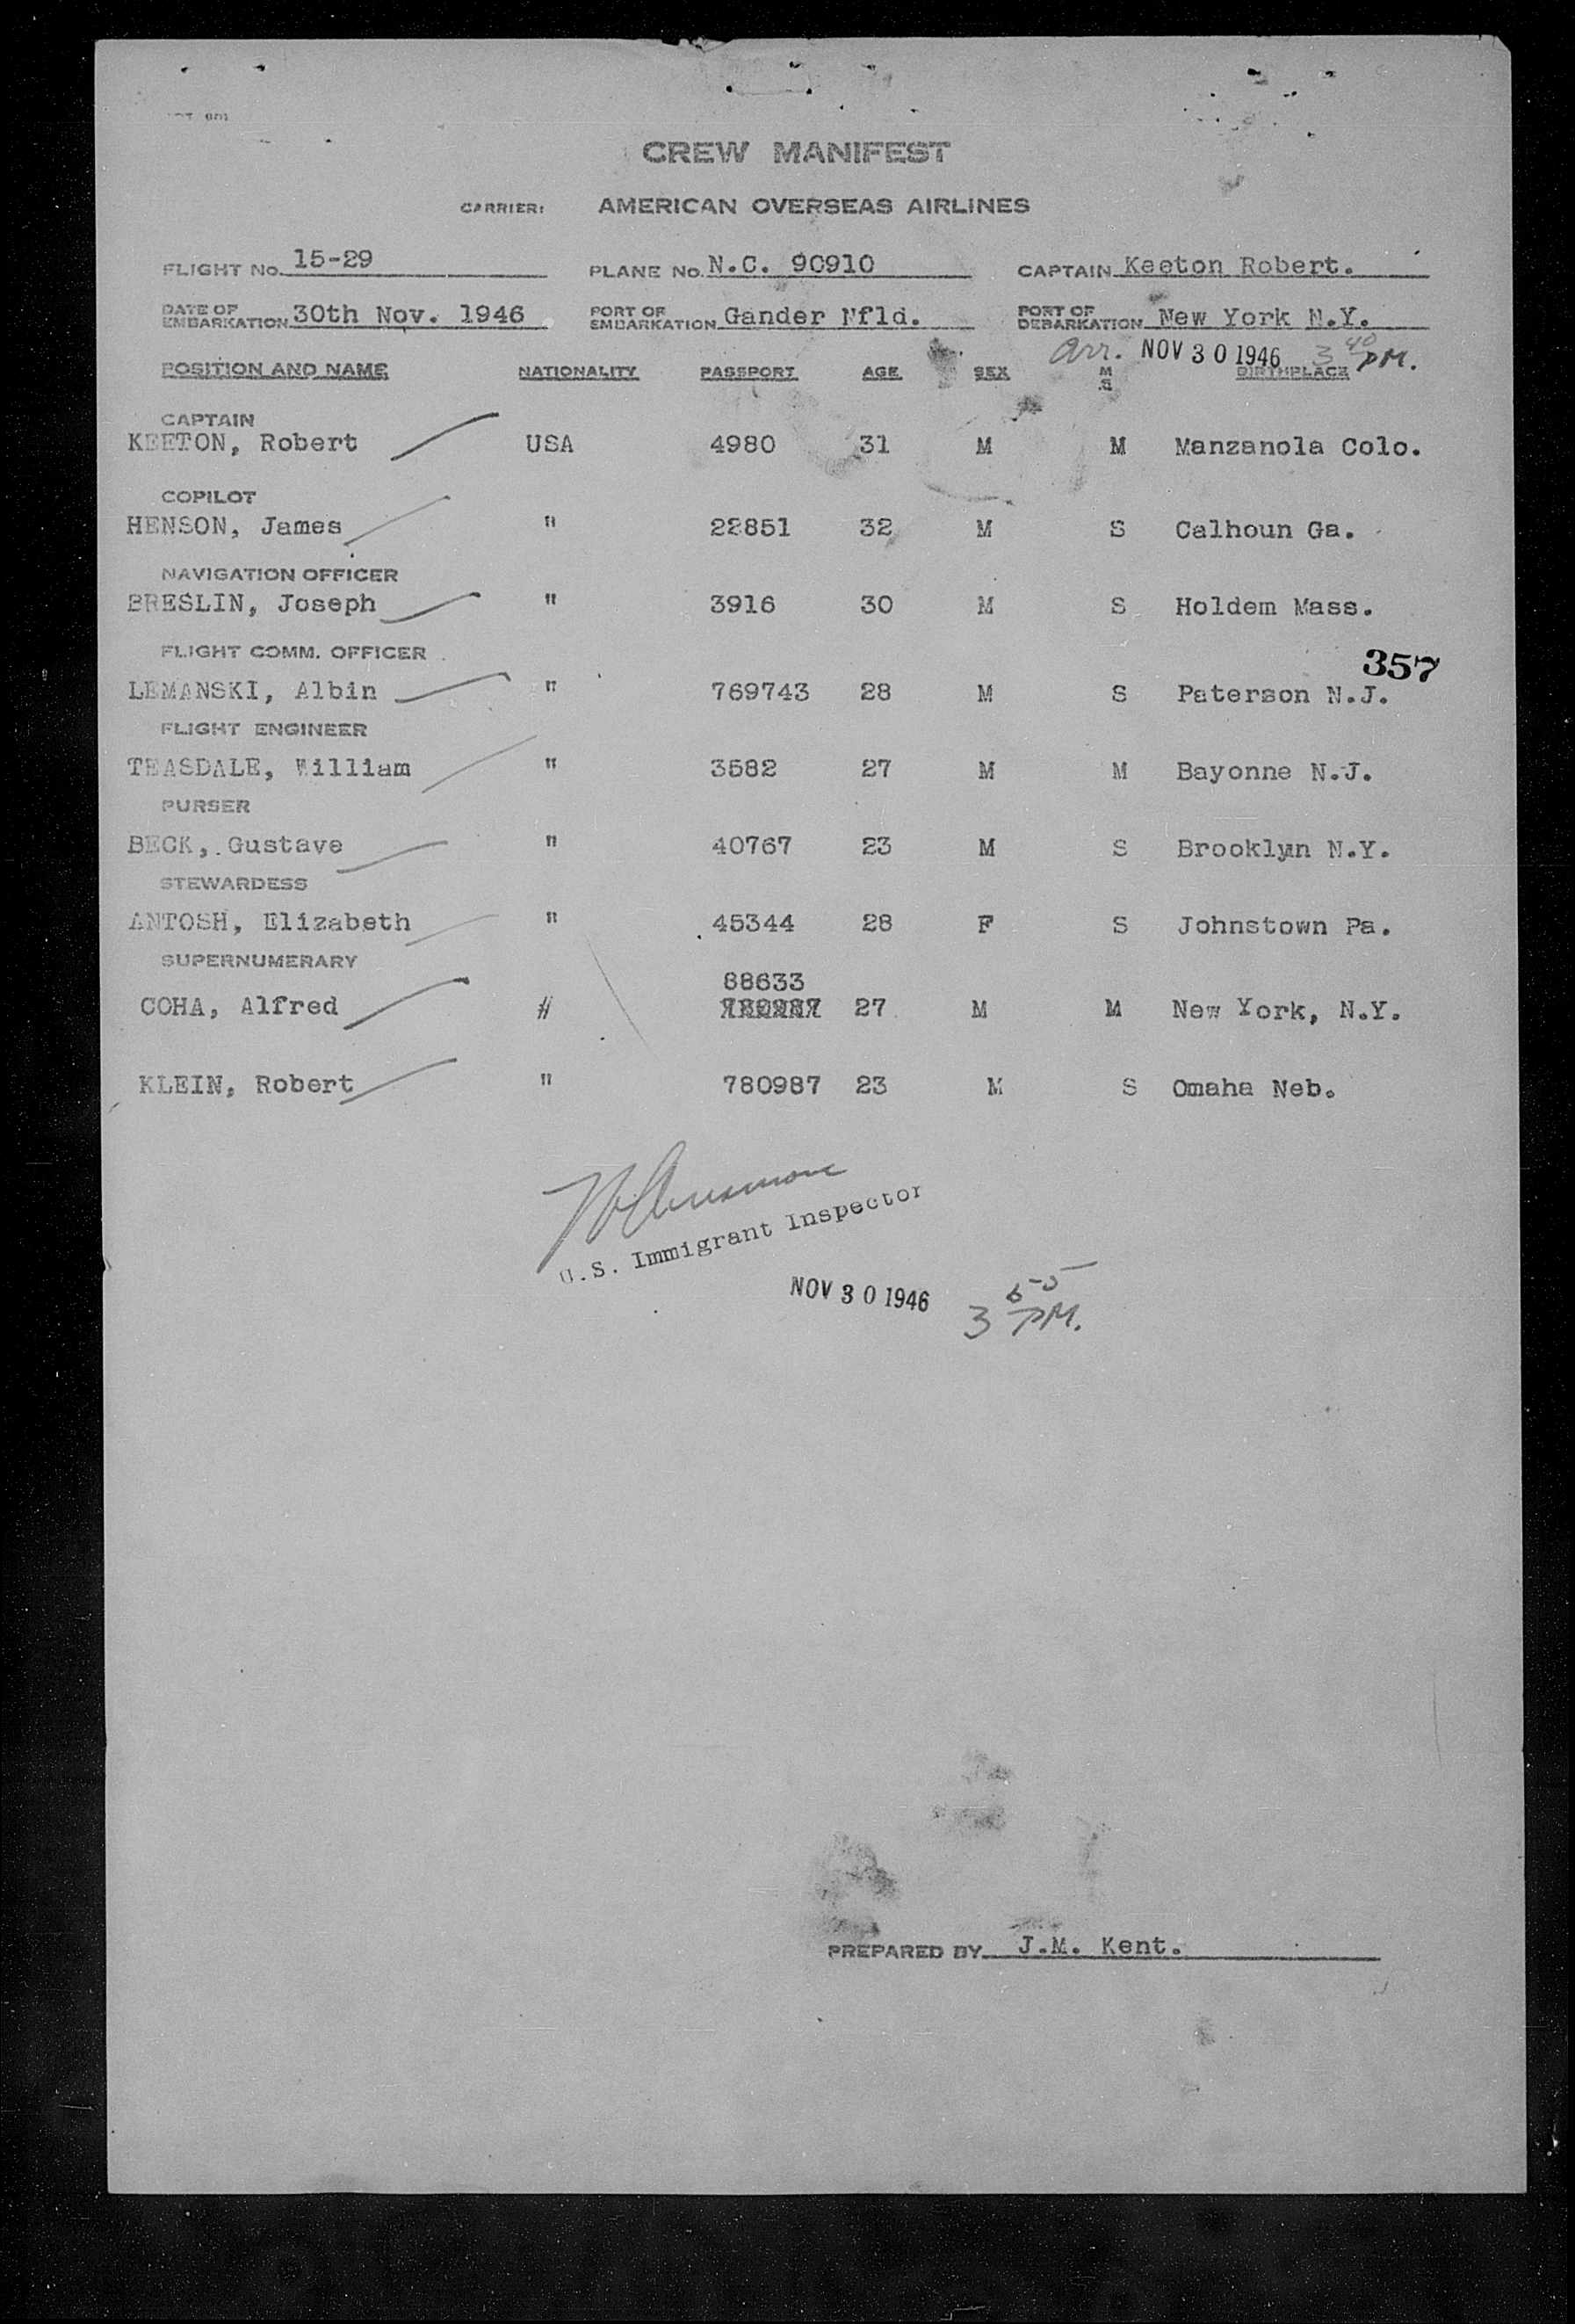 CREW MANIFEST
CARRIER: AMERICAN OVERSEAS AIRLINES
FLIGHT No. 15-29 PLANE No. N.C. 90910 CAPTAIN Keeton Robert.
DATE OF EMBARKATION 30th Nov. 1946 PORT OF EMBARKATION Gander Nfld. PORT OF DEBARKATION New York N.Y.
Arr. NOV 30 1946 3 40 PM.
POSITION AND NAME NATIONALITY PASSPORT AGE SEX M S BIRTHPLACE
CAPTAIN
KEETON, Robert USA 4980 31 M M Manzanola Colo.
COPILOT
HENSON, James " 22851 32 M S Calhoun Ga.
NAVIGATION OFFICER
BRESLIN, Joseph " 3916 30 M S Holdem Mass.
FLIGHT COMM. OFFICER
357
LEMANSKI, Albin " 769743 28 M S Paterson N.J.
FLIGHT ENGINEER
TEASDALE, William " 3582 27 M M Bayonne N.J.
PURSER
BECK, Gustave " 40767 23 M S Brooklyn N.Y.
STEWARDESS
ANTOSH, Elizabeth " 45344 28 F S Johnstown Pa.
SUPERNUMERARY
88633
COHA, Alfred " 27 M M New York, N.Y.
KLEIN, Robert " 780987 23 M S Omaha Neb.
U.S. Immigrant Inspector
NOV 30 1946 3 55 PM.
PREPARED BY J.M. Kent.